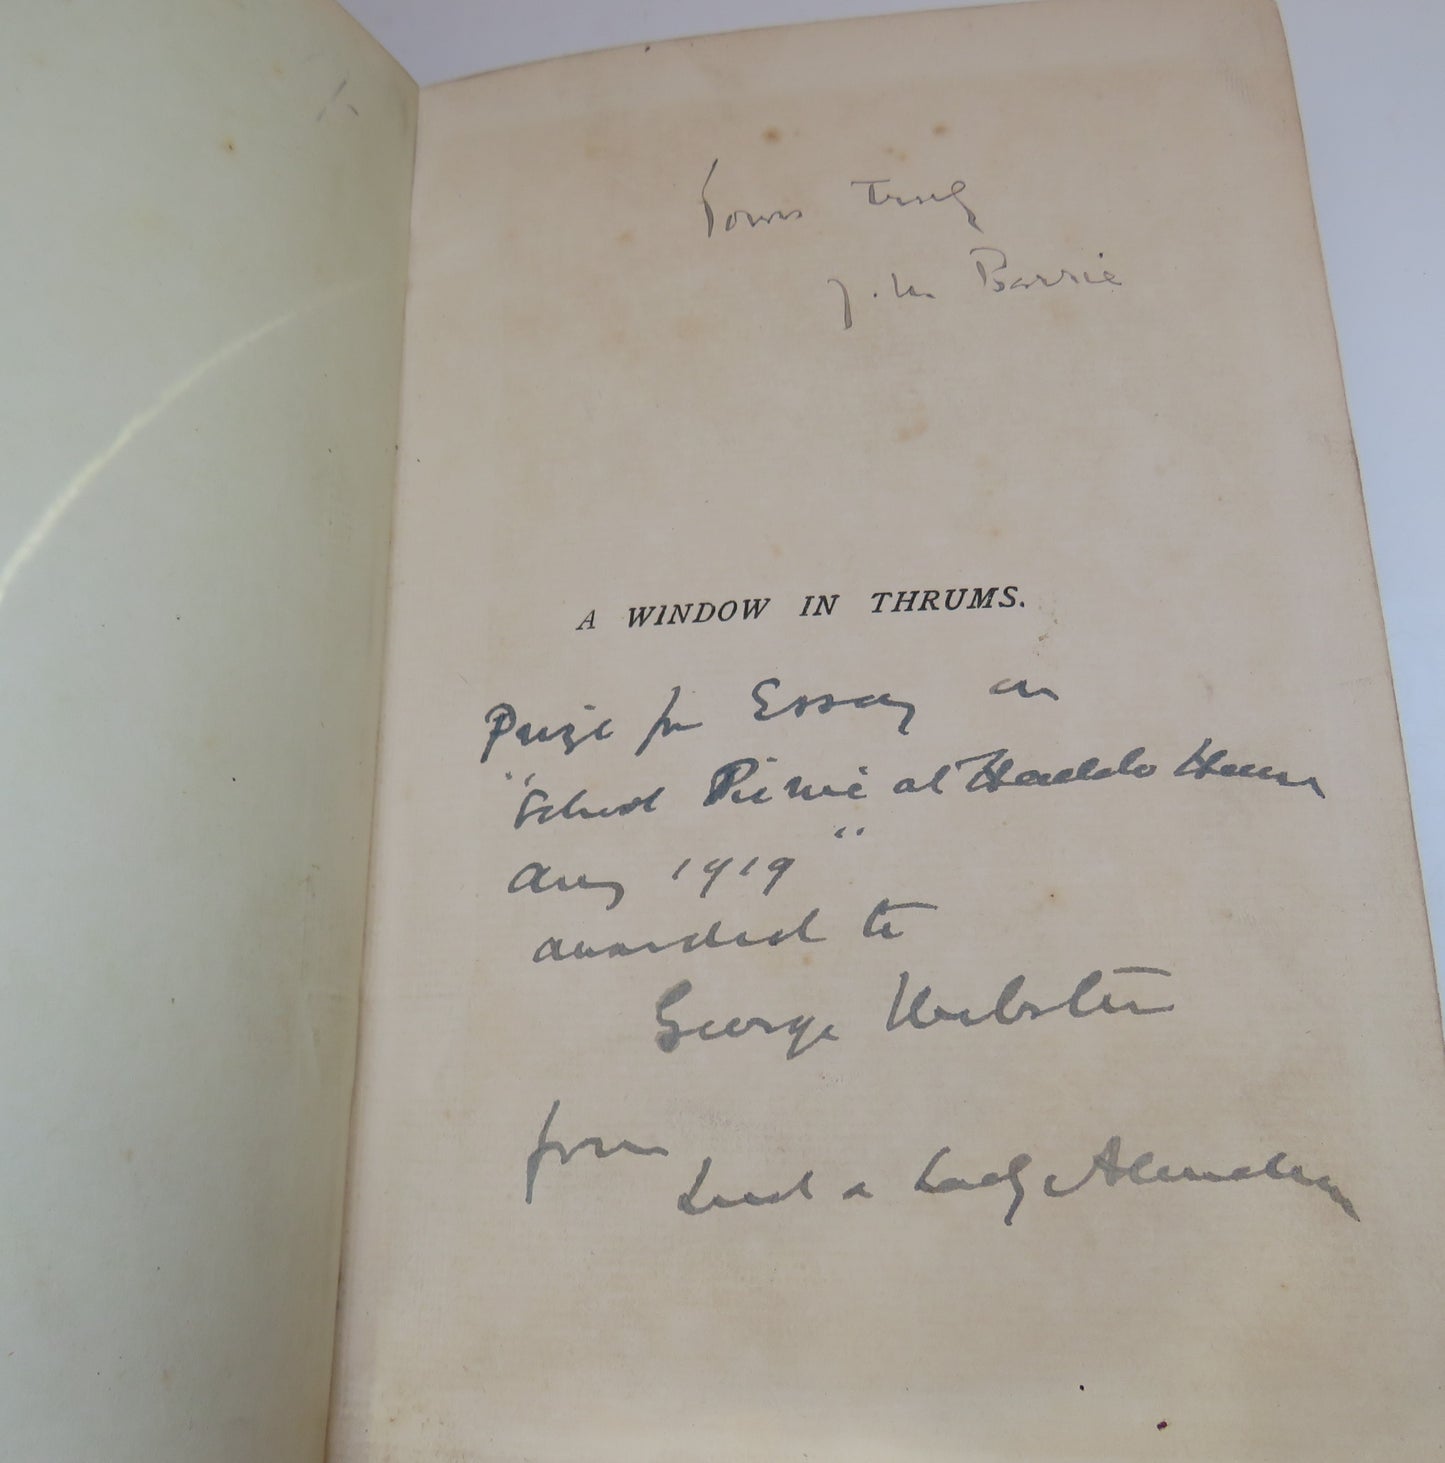 Yours Truly
J. M. Barrie
A WINDOW IN THRUMS.
Prize for Essay on
"School Picnic at Haddo House
Aug 1919"
awarded to
George Webster
from
Lord & Lady Aberdeen